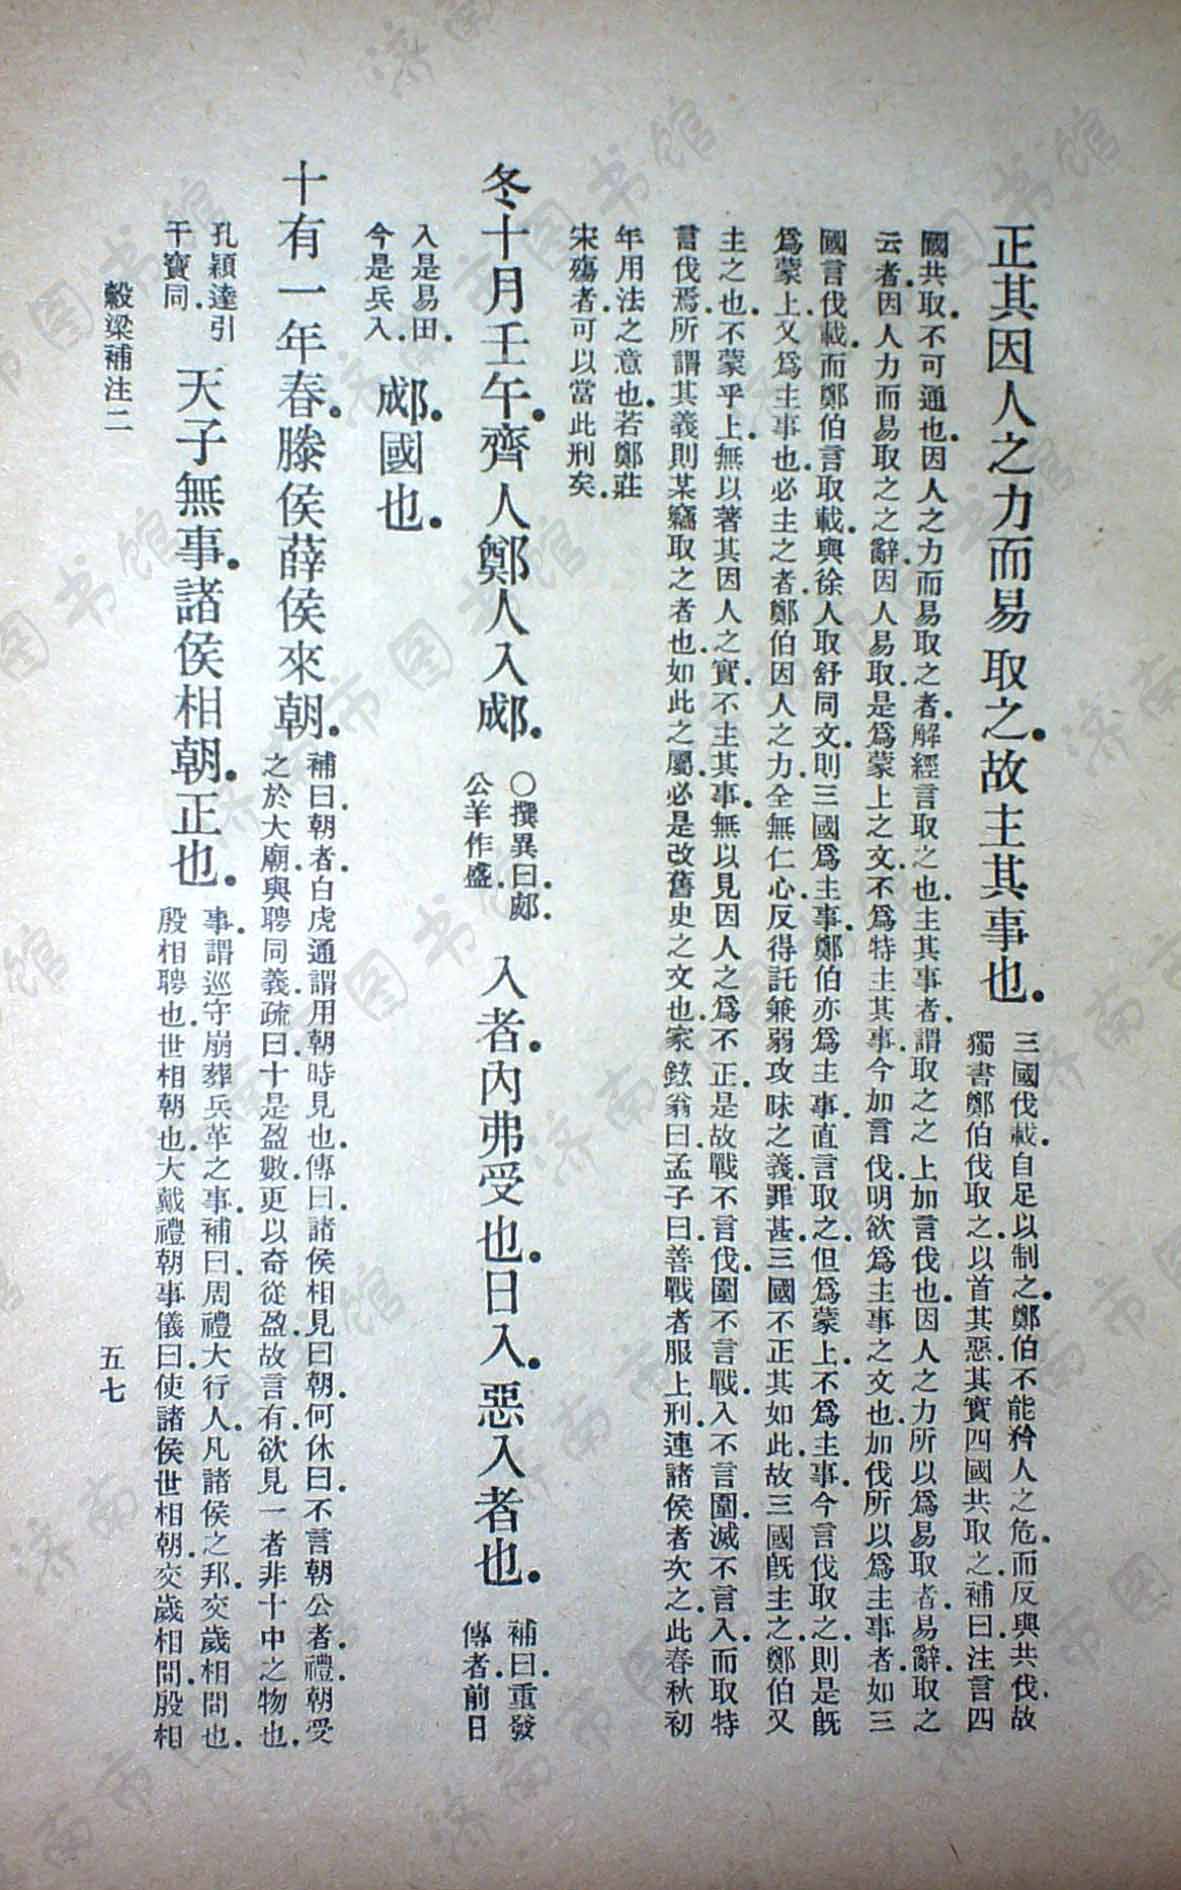 正其因人之力而易取之。故主其事也。
三國伐載。自足以制之。鄭伯不能矜人之危。而反與共伐。故
獨書鄭伯伐取之。以首其惡。其實四國共取之。補曰。注言四
國共取。不可通也。因人之力而易取之者。解經言取之也。主其事者。謂取之之上加言伐也。因人之力所以爲易取者。易辭。取之
云者。因人力而易取之之辭。因人易取。是爲蒙上之文。不爲特主其事。今加言伐。明欲爲主事之文也。加伐所以爲主事者。如三
國言伐載。而鄭伯言取載。與徐人取舒同文。則三國爲主事。鄭伯亦爲主事。直言取之。但爲蒙上。不爲主事。今言伐取之。則是旣
爲蒙上。又爲主事也。必主之者。鄭伯因人之力。全無仁心。反得託兼弱攻昧之義。罪甚三國。不正其如此。故三國旣主之。鄭伯又
主之也。不蒙乎上。無以著其因人之實。不主其事。無以見因人之爲不正。是故戰不言伐。圍不言戰。入不言圍。滅不言入。而取特
言伐焉。所謂其義則某竊取之者也。如此之屬。必是改舊史之文也。家鉉翁曰。孟子曰。善戰者服上刑。連諸侯者次之。此春秋初
年用法之意也。若鄭莊
宋殤者。可以當此刑矣。
冬十月壬午。齊人鄭人入郕。
○撰異曰。郕。
公羊作盛。
入者。內弗受也。日入。惡入者也。
補曰。重發
傳者。前日
入是易田。
今是兵入。
郕。國也。
十有一年春。滕侯薛侯來朝。
補曰。朝者。白虎通謂用朝時見也。傳曰。諸侯相見曰朝。何休曰。不言朝公者。禮。朝受
之於大廟。與聘同義。疏曰。十是盈數。更以奇從盈。故言有。欲見一者非十中之物也。
孔穎達引
干寶同。
天子無事。諸侯相朝。正也。
事。謂巡守崩葬兵革之事。補曰。周禮大行人。凡諸侯之邦交。歲相問也。
殷相聘也。世相朝也。大戴禮朝事儀曰。使諸侯世相朝。交歲相問。殷相
穀梁補注二
五七